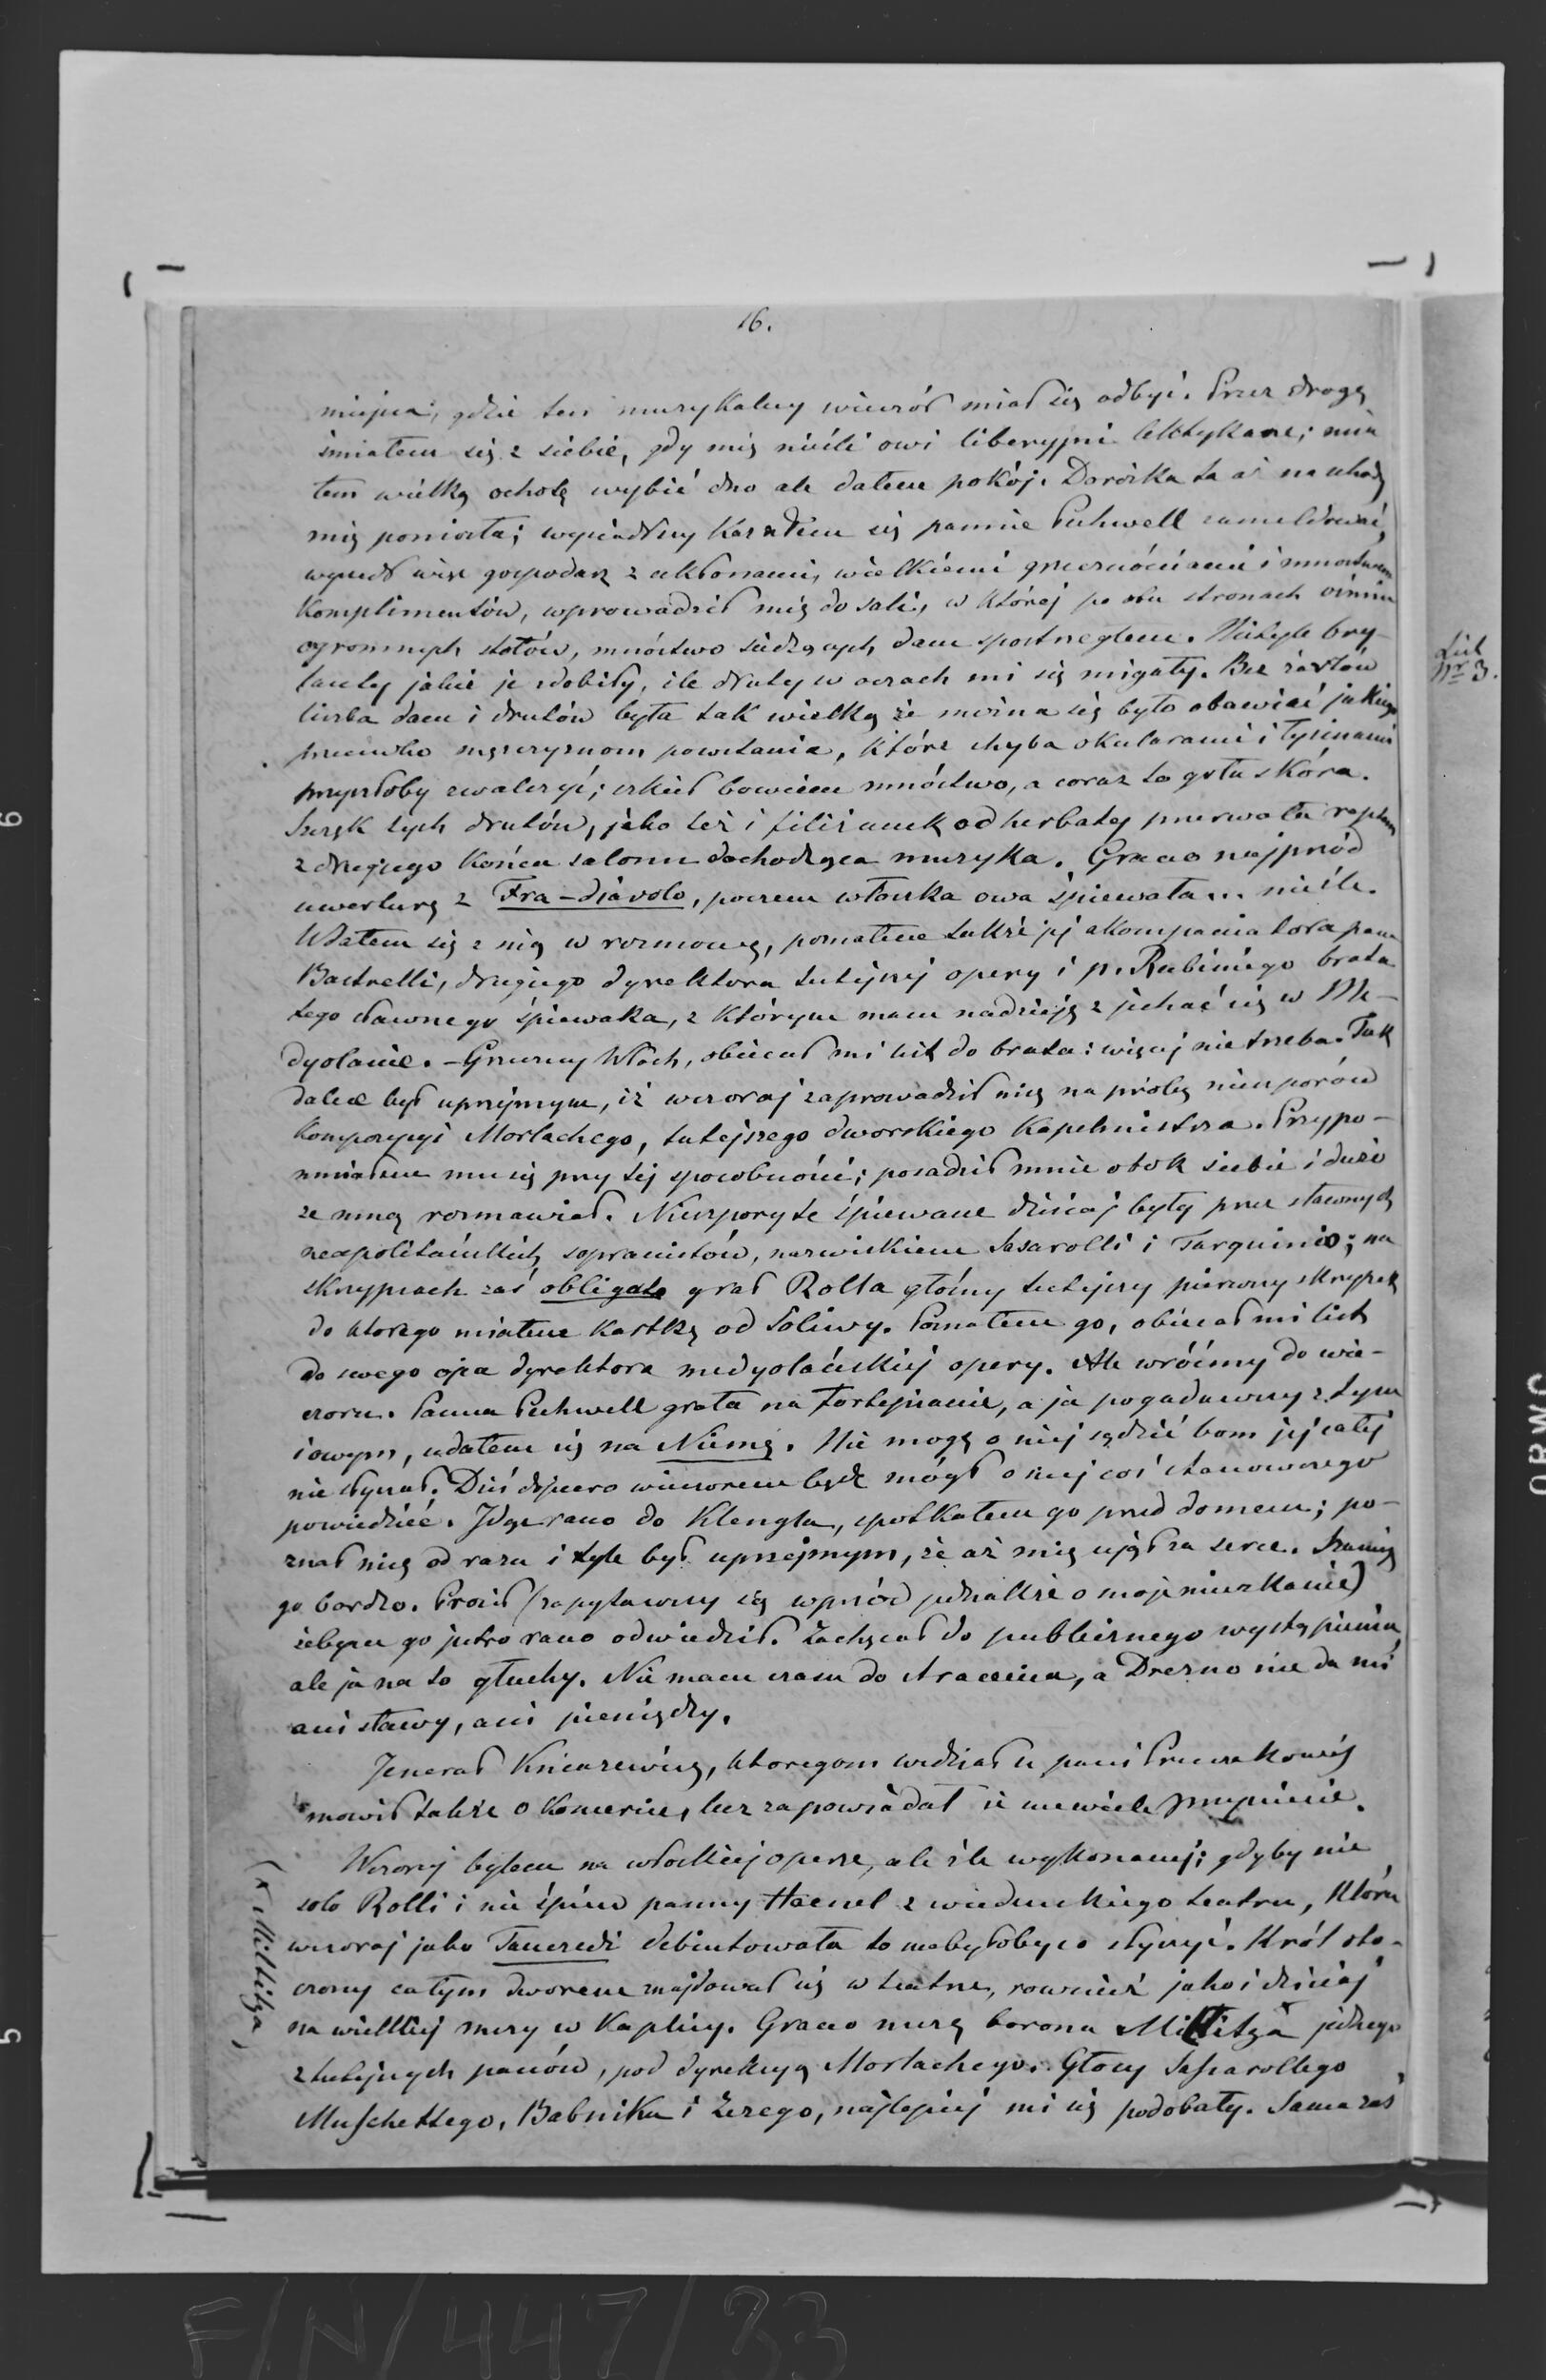 16.
miejsca, gdzie ten muzykalny wieczór miał się odbyć. Przez drogę
śmiałem się z siebie, gdy mię nieśli owi liberyjni lektykarze; mia
łem wielką ochotę wybić dno ale dałem pokój. Dorożka ta aż na schody
mię poniosła; wysiadłszy kazałem się pannie Pechwell zameldować,
wyszedł więc gospodarz z ukłonami, wielkiemi grzecznościami i mnóstwem
komplimentów, wprowadził mię do sali, w której po obu stronach ośmiu
ogromnych stołów, mnóstwo siedzących dam spostrzegłem. Nietyle bry-
lanty jakie je zdobiły, ile druty w oczach mi się migały. Bez żartów
liczba dam i drutów była tak wielką że można się było obawiać jakiego
przeciwko mężczyznom powstania, które chyba okularami i łysinami
przyszłoby zwalczyć; szkieł bowiem mnóstwo, a coraz to goła skóra.
Szczęk tych drutów, jako też i filiżanek od herbaty przerwała raptem
z drugiego końca salonu dochodząca muzyka. Grano najprzód
uwerturę z Fra-diavolo, poczem włoszka owa śpiewała... nieźle.
Wdałem się z nią w rozmowę, poznałem także jej akompaniatora pana
Rastrelli, drugiego dyrektora tutejszej opery i p. Rubiniego brata
tego sławnego śpiewaka, z którym mam nadzieję zjechać się w Me-
dyolanie. – Grzeczny Włoch, obiecał mi list do brata: więcej nie trzeba. Tak
dalece był uprzejmym, iż wczoraj zaprowadził mię na próbę nieszporów
kompozycyi Morlachego, tutejszego dworskiego kapelmistrza. Przypo-
mniałem mu się przy tej sposobności; posadził mnie obok siebie i dużo
ze mną rozmawiał. Nieszpory te śpiewane dzisiaj były przez sławnych
neapolitańskich sopranistów, nazwiskiem Sasarolli i Tarquinio; na
skrzypcach zaś obligato grał Rolla główny tutejszy pierwszy skrzypek
do ktorego miałem kartkę od Soliwy. Poznałem go, obiecał mi list
do swego ojca dyrektora medyolańskiej opery. Ale wróćmy do wie-
czoru. Panna Pechwell grała na fortepianie, a ja pogadawszy z tym
i owym, udałem się na Niemę. Nie mogę o niej sądzić bom jej całej
nie słyszał. Dziś dopiero wieczorem będę mógł o niej coś stanowczego
powiedzieć. Idąc rano do Klengla, spotkałem go przed domem; po-
znał mię od razu i tyle był uprzejmym, że aż mię ujął za serce. Szanuję
go bardzo. Prosił (zapytawszy się wprzód jednakże o moje mieszkanie)
żebym go jutro rano odwiedził. Zachęcał do publicznego wystąpienia,
ale ja na to głuchy. Nie mam czasu do stracenia, a Drezno nie da mi
ani sławy, ani pieniędzy.
Jenerał Kniaziewicz, ktoregom widział u pani Pruszakowéj
mowił także o koncercie, lecz zapowiadał że niewiele przyniesie.
Wczoraj byłem na włoskiej operze, ale źle wykonanej; gdyby nie
solo Rolli i nie śpiew panny Haenel z wiedeńskiego teatru, która
wczoraj jako Tancredi debiutowała to niebyłoby co słyszyć. Król oto-
czony całym dworem znajdował się w teatrze, rownież jako i dzisiaj
na wielkiej mszy w kaplicy. Grano mszę barona Miltitza jednego
z tutejszych panów, pod dyrekcyą Morlachego. Głosy Sassarollego
Muschettego, Babnika i Zezego, najlepiej mi się podobały. Sama zaś
(x Miltitza)
List
Nr 3.
F/N/447/33
6
5
ORWO